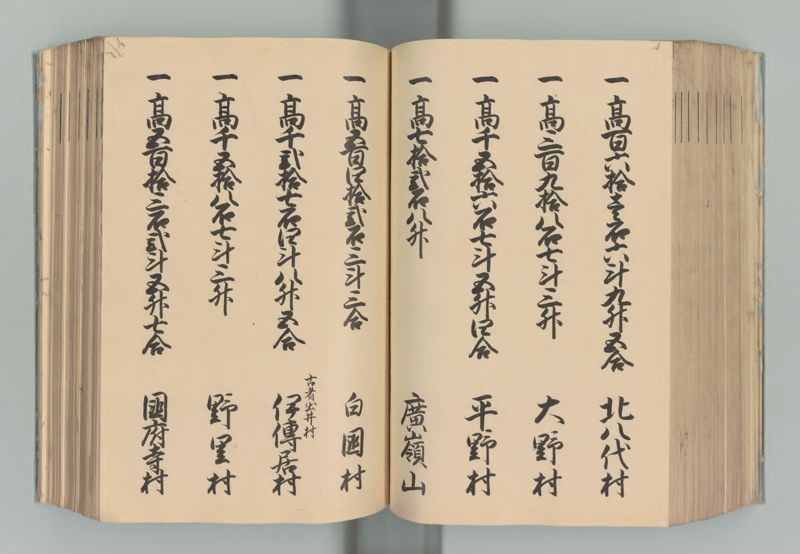 一 高百六拾壱石六斗九升五合 北八代村
一 高三百九拾八石七斗三升 大野村
一 高千五拾六石七斗五升四合 平野村
一 高七拾弐石八升 廣嶺山
一 高五百四拾弐石三斗三合 白國村
一 高千弐拾七石四斗八升五合 伊傳居村
古者出井村
一 高千五拾八石七斗三升 野里村
一 高五百拾三石弐斗五升七合 國府寺村